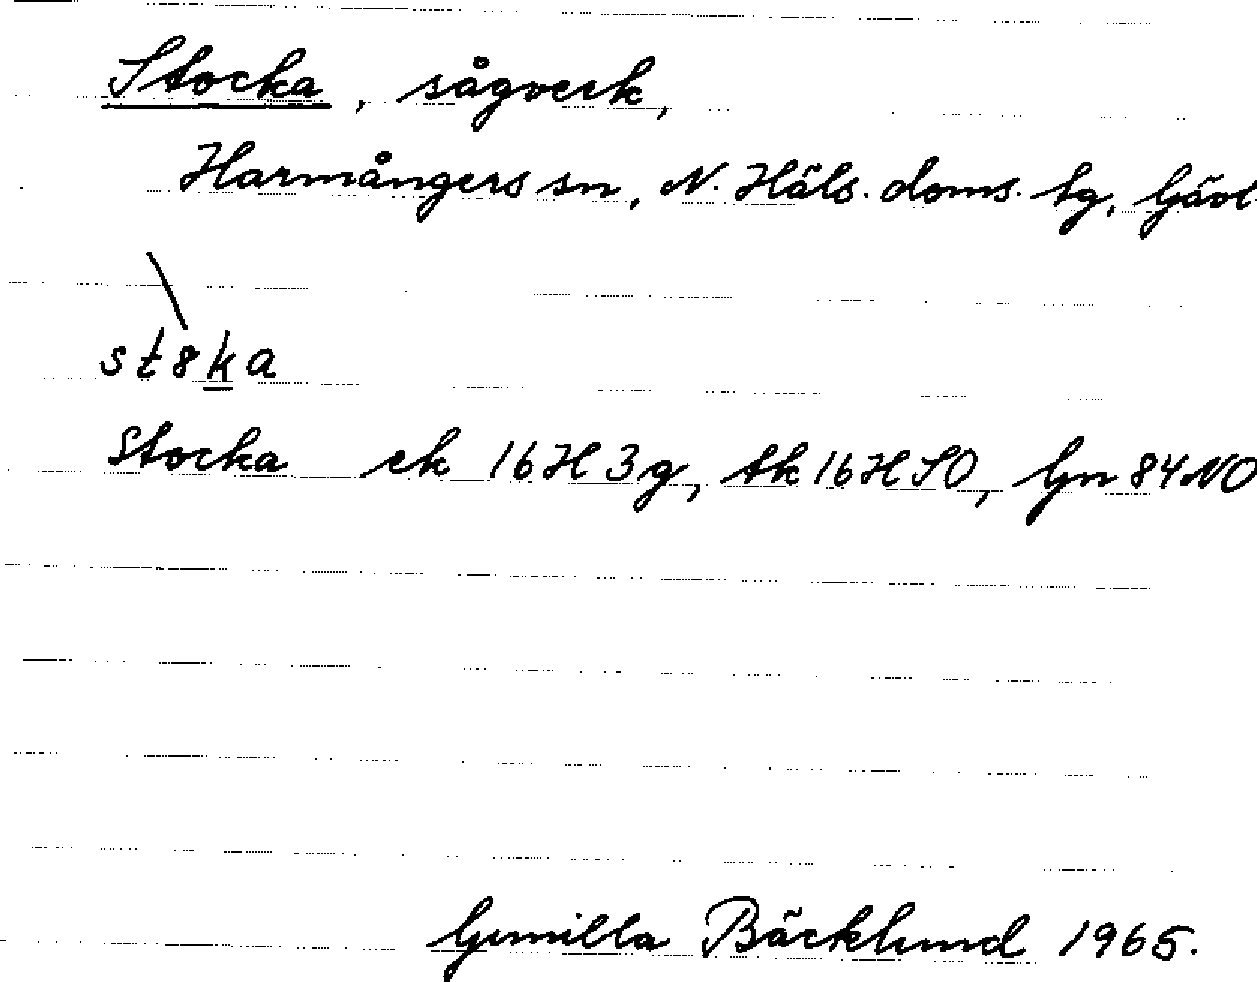 Stocka, sågverk,
Harmångers sn, N. Häls. doms. tg, Gävl
st8ka
Stocka ek 16H3g, tk 16HSO, Gn 84NO
Gunilla Bäcklund 1965.